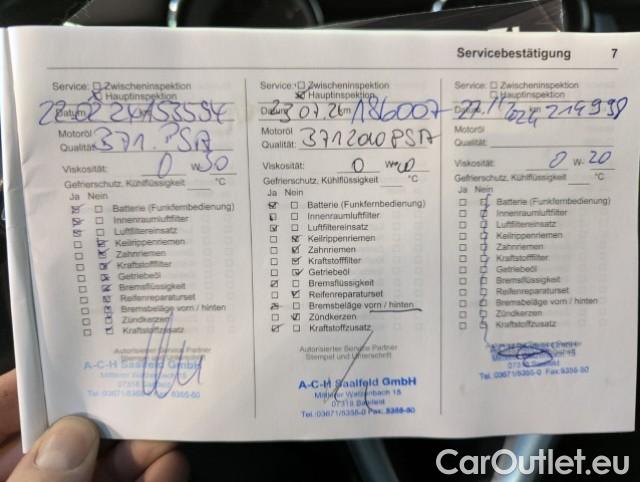 Servicebestätigung 7
Service: Zwischeninspektion
Hauptinspektion
Datum 153594
Motoröl
Qualität: 371. PSA
Viskosität: 0 W- 30
Gefrierschutz, Kühlflüssigkeit °C
Ja Nein
Batterie (Funkfernbedienung)
Innenraumluftfilter
Luftfiltereinsatz
Keilrippenriemen
Zahnriemen
Kraftstofffilter
Getriebeöl
Bremsflüssigkeit
Reifenreparaturset
Bremsbeläge vorn / hinten
Zündkerzen
Kraftstoffzusatz
Autorisierter Service Partner
Stempel und Unterschrift
A-C-H Saalfeld GmbH
Mittlerer Watzenbach 15
07318 Saalfeld
Service: Zwischeninspektion
Hauptinspektion
Datum 23.07. km 186007
Motoröl
Qualität: PSA
Viskosität: 0 W-
Gefrierschutz, Kühlflüssigkeit °C
Ja Nein
Batterie (Funkfernbedienung)
Innenraumluftfilter
Luftfiltereinsatz
Keilrippenriemen
Zahnriemen
Kraftstofffilter
Getriebeöl
Bremsflüssigkeit
Reifenreparaturset
Bremsbeläge vorn / hinten
Zündkerzen
Kraftstoffzusatz
Autorisierter Service Partner
Stempel und Unterschrift
A-C-H Saalfeld GmbH
Mittlerer Watzenbach 15
07318 Saalfeld
Tel.:03671/5355-0 Fax:
Service: Zwischeninspektion
Hauptinspektion
Datum km
Motoröl
Qualität:
Viskosität: 0 W- 20
Gefrierschutz, Kühlflüssigkeit °C
Ja Nein
Batterie (Funkfernbedienung)
Innenraumluftfilter
Luftfiltereinsatz
Keilrippenriemen
Zahnriemen
Kraftstofffilter
Getriebeöl
Bremsflüssigkeit
Reifenreparaturset
Bremsbeläge vorn / hinten
Zündkerzen
Kraftstoffzusatz
CarOutlet.eu